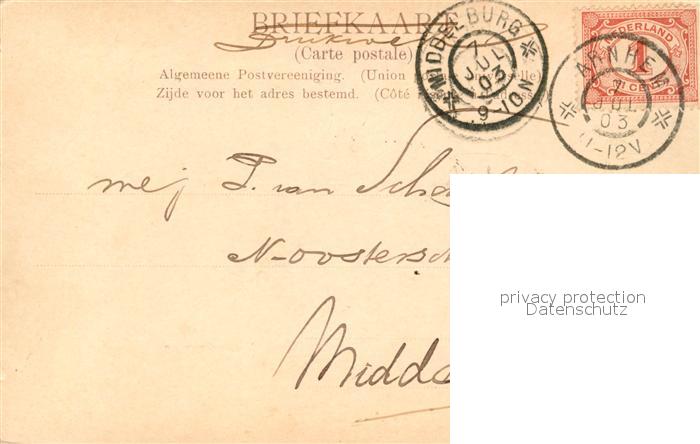 BRIEFKAART
Drukwerk
(Carte postale)
Algemeene Postvereeniging. (Union
Zijde voor het adres bestemd. (Côté
MIDDELBURG
7
JUL
03
9-10N
NEDERLAND
1
CENT
ARNHEM
7
JUL
03
11-12V
mej
van
N-oostersch
Midde
privacy protection
Datenschutz